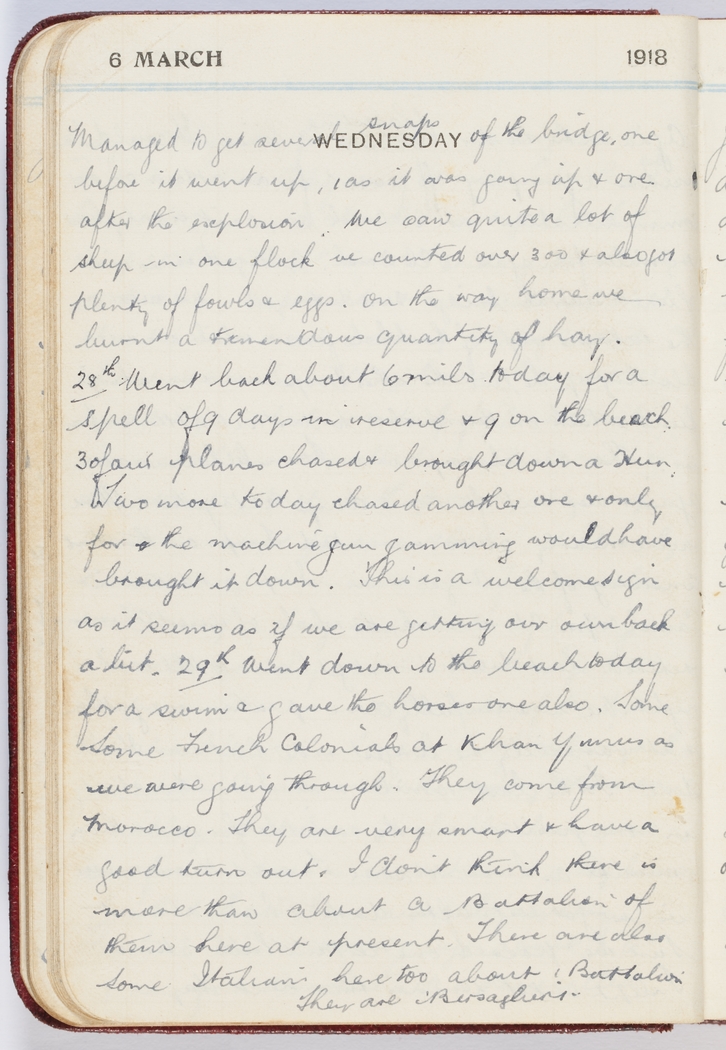 6 MARCH 1918
WEDNESDAY
Managed to get several snaps of the bridge, one
before it went up, 1 as it was going up & one
after the explosion. We saw quite a lot of
sheep in one flock we counted over 300 & also got
plenty of fowls & eggs. On the way home we
burnt a tremendous quantity of hay.
28th. Went back about 6 miles today for a
spell of 9 days in reserve & 9 on the beach.
3 of our planes chased & brought down a Hun.
Two more today chased another one & only
for the machine gun jamming would have
brought it down. This is a welcome sign
as it seems as if we are getting our own back
a bit. 29th Went down to the beach today
for a swim & gave the horses one also. Some
Some French Colonials at Khan Yunus as
we were going through. They come from
Morocco. They are very smart & have a
good turn out. I don't think there is
more than about a Battalion of
them here at present. There are also
some Italians here too about 1 Battalion
They are Bersaglieri.